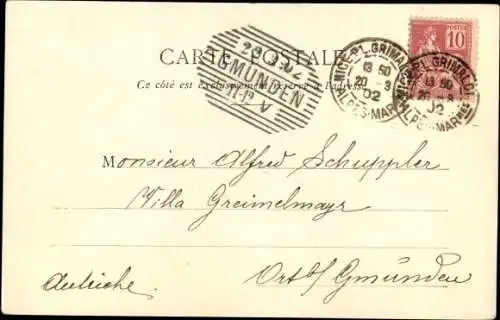 CARTE POSTALE
Ce côté est exclusivement réservé à l'adresse
28.3.02
GMUNDEN
NICE-PL. GRIMALDI
13 50
20 -3
02
ALPES-MARMES
NICE-PL. GRIMALDI
13 50
20 -3
02
ALPES-MARMES
POSTES
10
Monsieur Alfred Schuppler
Villa Greimelmayr
Autriche.
Ort b/ Gmünden